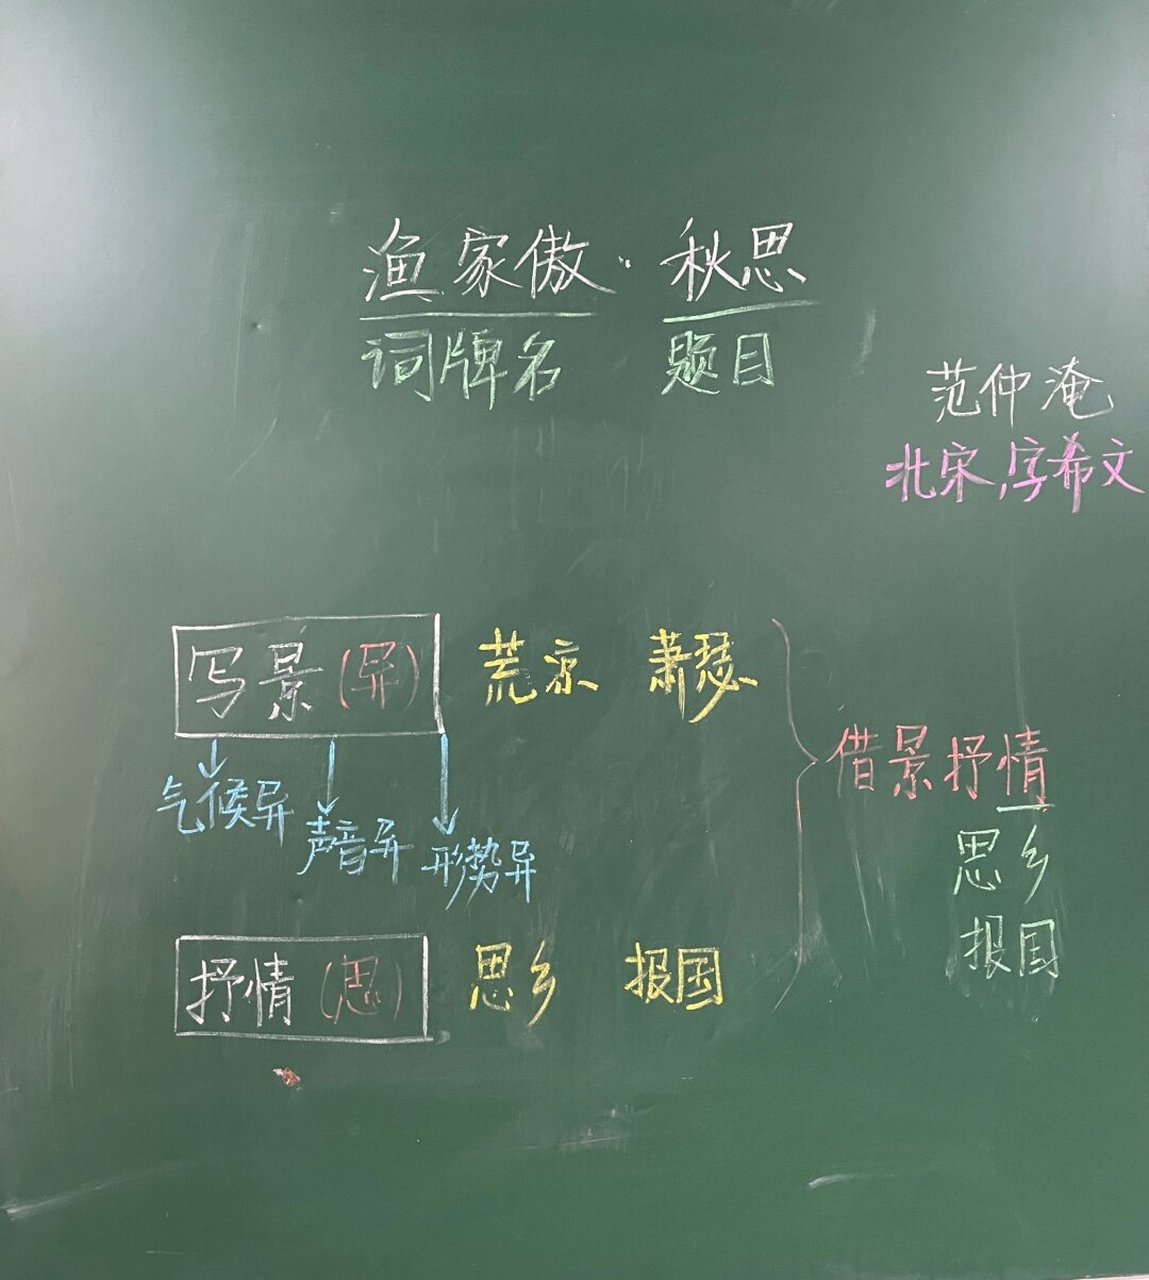 渔家傲·秋思
词牌名 题目
范仲淹
北宋,字希文
写景(异) 荒凉 萧瑟
气候异 声音异 形势异
借景抒情
思乡
报国
抒情(思) 思乡 报国